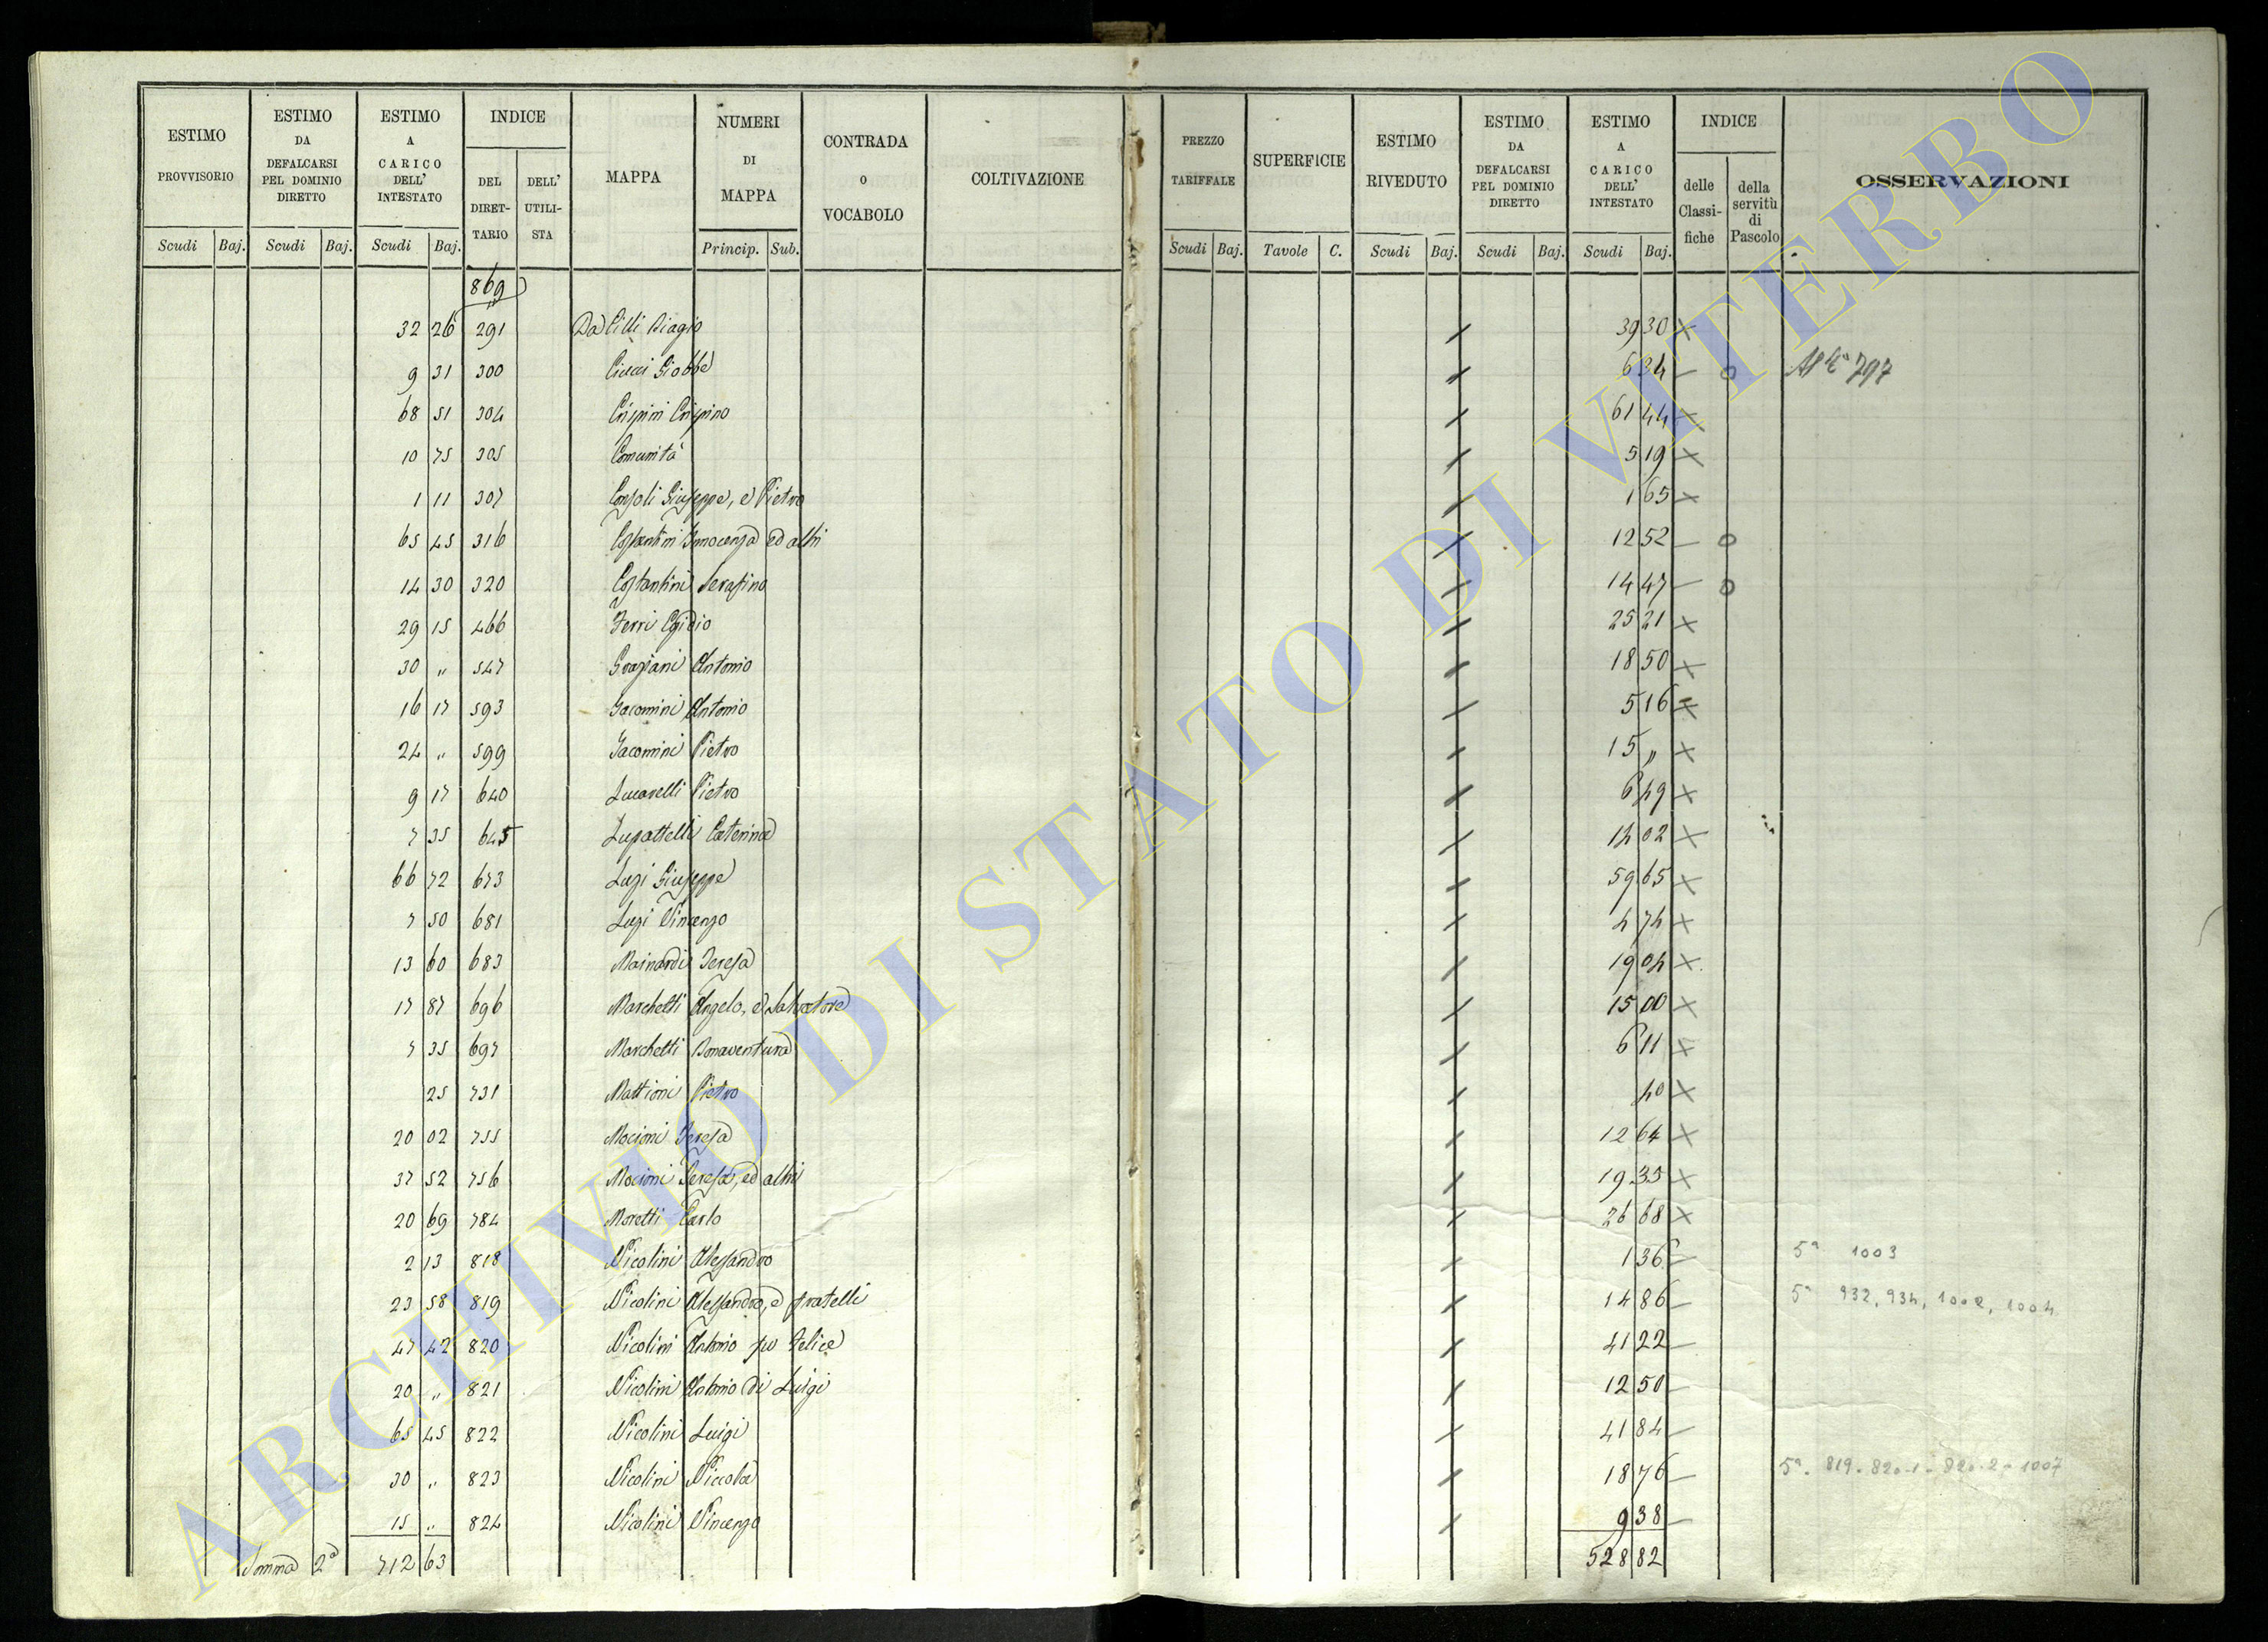 ESTIMO PROVVISORIO
ESTIMO DA DEFALCARSI PEL DOMINIO DIRETTO
ESTIMO A CARICO DELL' INTESTATO
INDICE
DEL DIRET-TARIO
DELL' UTILI-STA
MAPPA
NUMERI DI MAPPA
CONTRADA O VOCABOLO
COLTIVAZIONE
PREZZO TARIFFALE
SUPERFICIE
ESTIMO RIVEDUTO
ESTIMO DA DEFALCARSI PEL DOMINIO DIRETTO
ESTIMO A CARICO DELL' INTESTATO
INDICE
delle Classi-fiche
della servitù di Pascolo
OSSERVAZIONI
Scudi Baj. Scudi Baj. Scudi Baj. Princip. Sub. Scudi Baj. Tavole C. Scudi Baj. Scudi Baj. Scudi Baj.
869
32 26 291 Da Cilli Biagio 39 30 ×
9 31 300 Ciucci Giobbe 6 34 – o 797
68 51 304 Crispini Crispino 61 44 ×
10 75 305 Comunità 5 19 ×
1 11 307 Consoli Giuseppe, e Pietro 1 65 ×
65 45 316 Costantini Innocenza ed altri 12 52 – o
14 30 320 Costantini Serafino 14 47 – o
29 15 466 Ferri Egidio 25 21 ×
30 „ 547 Graziani Antonio 18 50 ×
16 17 593 Jacomini Antonio 5 16 ×
24 „ 599 Jacomini Pietro 15 „ ×
9 17 640 Lucarelli Pietro 6 49 ×
7 35 645 Lupattelli Caterina 14 02 ×
66 72 673 Luzi Giuseppe 59 65 ×
7 50 681 Luzi Vincenzo 4 74 ×
13 60 683 Mainardi Teresa 19 04 ×
17 87 696 Marchetti Angelo, e Salvatore 15 00 ×
7 35 697 Marchetti Bonaventura 6 11 ×
25 731 Mattioni Pietro 40 ×
20 02 755 Mocioni Teresa 12 64 ×
37 52 756 Mocioni Teresa, ed altri 19 35 ×
20 69 784 Moretti Carlo 26 68 ×
2 13 818 Nicolini Alessandro 1 36 – 5ª 1003
23 58 819 Nicolini Alessandro, e fratelli 14 86 – 5ª 932, 934, 1002, 1004
47 42 820 Nicolini Antonio fu Felice 41 22 –
20 „ 821 Nicolini Antonio di Luigi 12 50 –
65 45 822 Nicolini Luigi 41 84 –
30 „ 823 Nicolini Niccola 18 76 – 5ª. 819. 820.1 - 820.2 - 1007
15 „ 824 Nicolini Vincenzo 9 38 –
Somma 2ª 712 63 528 82
ARCHIVIO DI STATO DI VITERBO